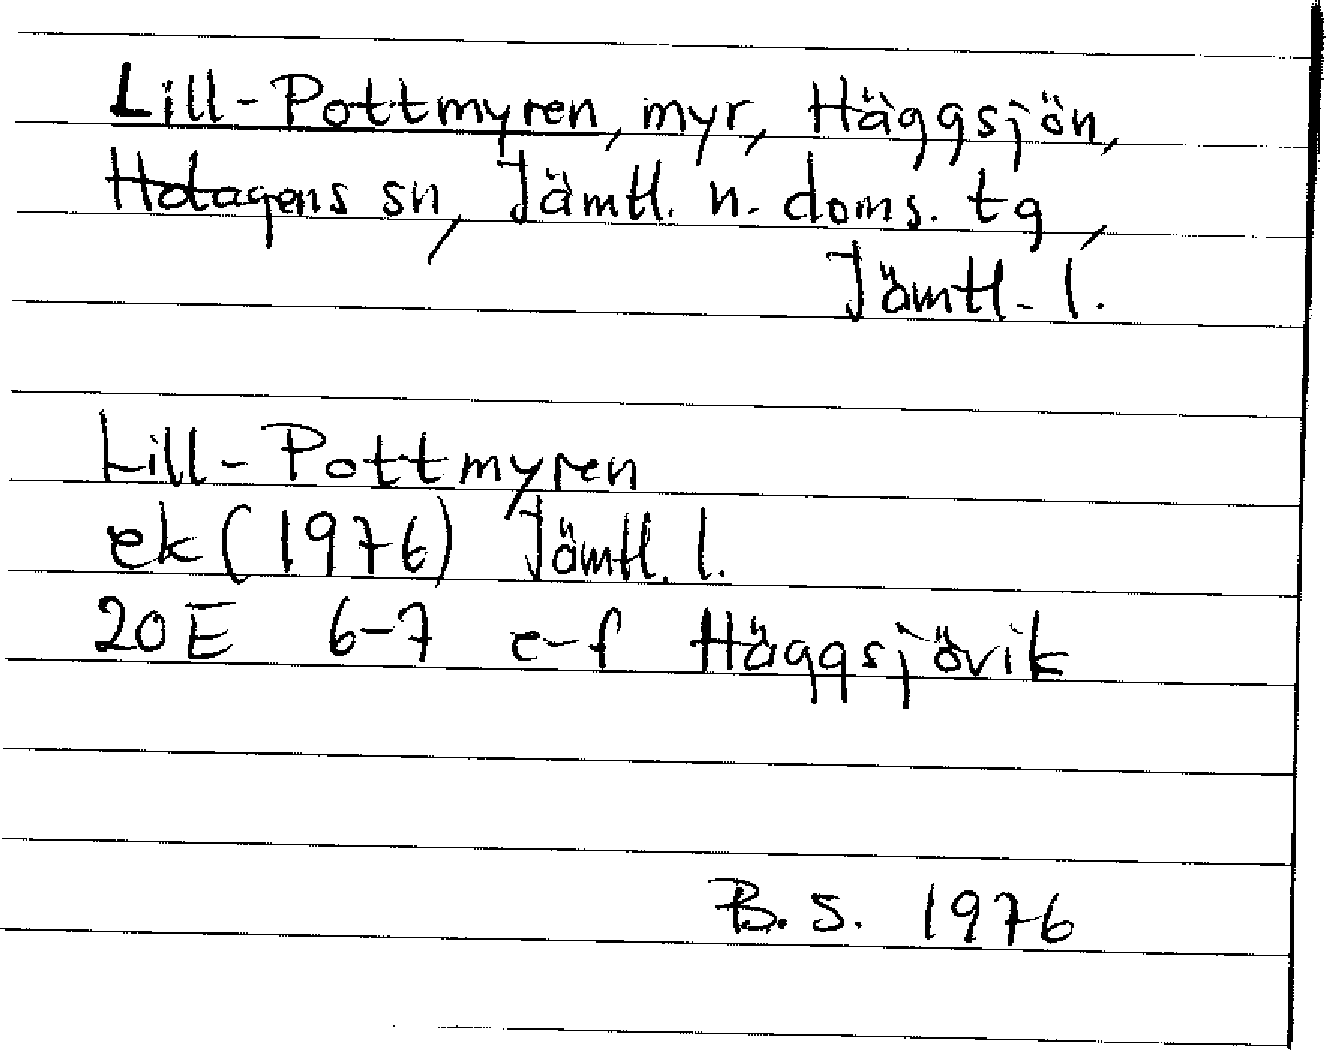 Lill-Pottmyren, myr, Häggsjön,
Hotagens sn, Jämtl. n. doms. tg,
Jämtl. l.
Lill-Pottmyren
ek (1976) Jämtl. l.
20E 6-7 e-f Häggsjövik
B. S. 1976